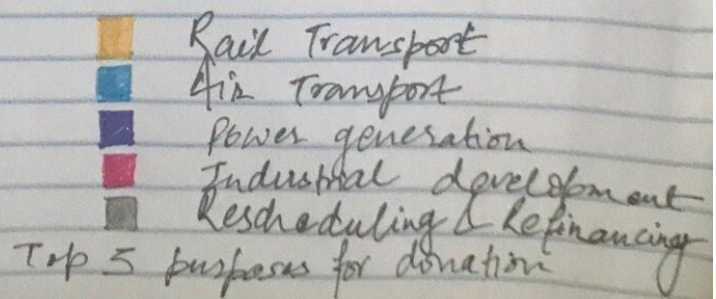 Rail Transport
Air Transport
Power generation
Industrial development
Rescheduling & Refinancing
Top 5 purposes for donation